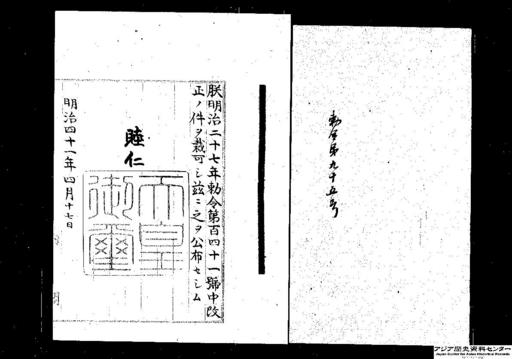 勅令第九十五号
朕明治二十七年勅令第百四十一號中改
正ノ件ヲ裁可シ茲ニ之ヲ公布セシム
睦仁
天皇
御璽
明治四十一年四月十七日
アジア歴史資料センター
Japan Center for Asian Historical Records